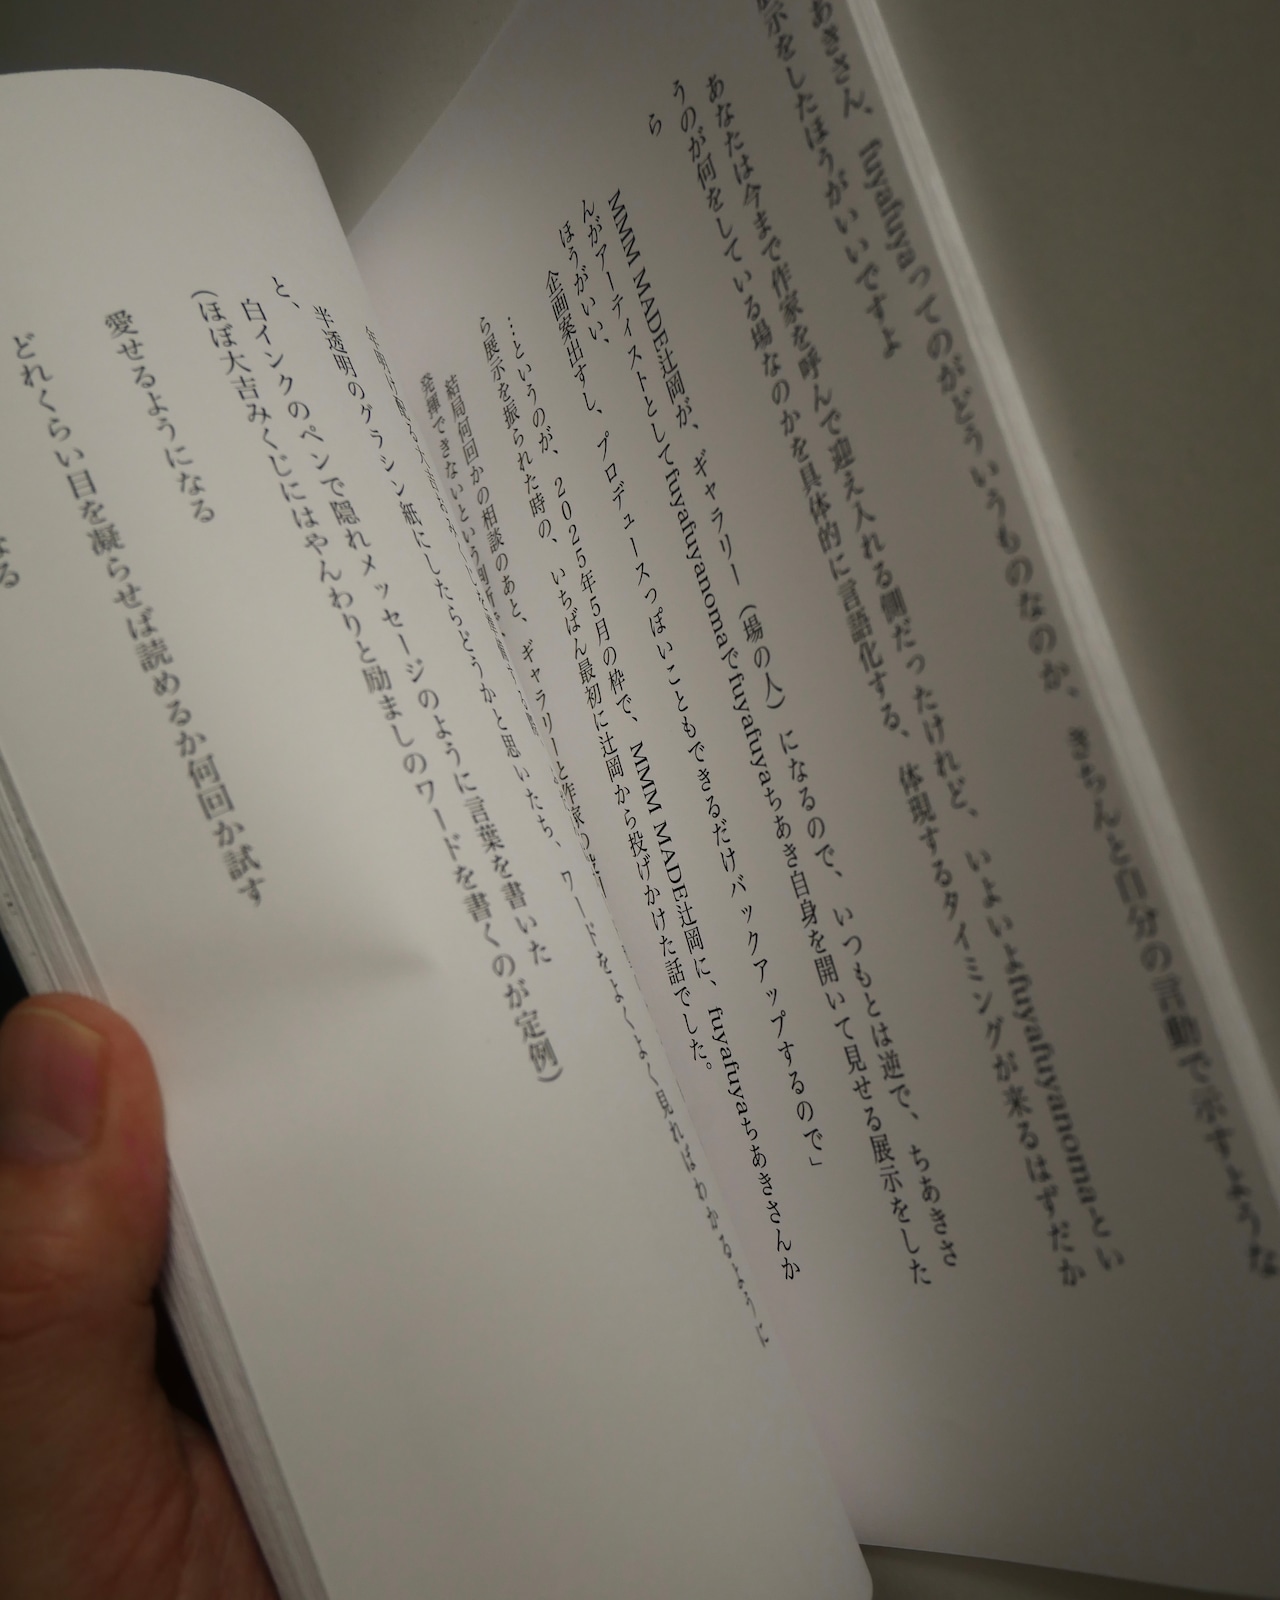 あきさん、fuyafuyaってのがどういうものなのか、きちんと自分の言動で示すような
展示をしたほうがいいですよ
あなたは今まで作家を呼んで迎え入れる側だったけれど、いよいよfuyafuyanomaとい
うのが何をしている場なのかを具体的に言語化する、体現するタイミングが来るはずだか
ら
MMM MADE辻岡が、ギャラリー（場の人）になるので、いつもとは逆で、ちあきさ
んがアーティストとしてfuyafuyanomaでfuyafuyaちあき自身を開いて見せる展示をした
ほうがいい、
企画案出すし、プロデュースっぽいこともできるだけバックアップするので」
…というのが、2025年5月の枠で、MMM MADE辻岡に、fuyafuyaちあきさんか
ら展示を振られた時の、いちばん最初に辻岡から投げかけた話でした。
結局何回かの相談のあと、ギャラリーと作家の
発揮できないという判断で
ワードをよくよく見ればわかるように
半透明のグラシン紙にしたらどうかと思いたち、
と、
白インクのペンで隠れメッセージのように言葉を書いた
（ほぼ大吉みくじにはやんわりと励ましのワードを書くのが定例）
愛せるようになる
どれくらい目を凝らせば読めるか何回か試す
なる